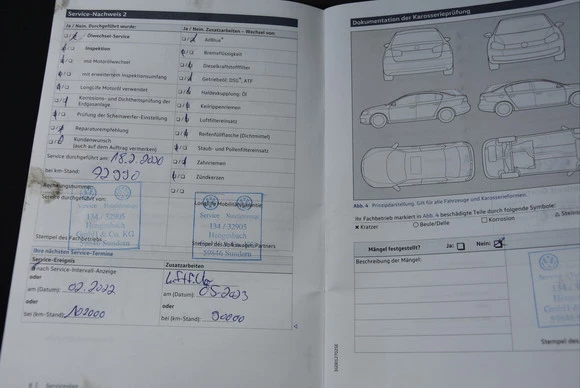 Service-Nachweis 2
Ja / Nein: Durchgeführt wurde:
Ölwechsel-Service
Inspektion
mit Motorölwechsel
mit erweitertem Inspektionsumfang
LongLife Motoröl verwendet
Korrosions- und Dichtheitsprüfung der
Erdgasanlage
Prüfung der Scheinwerfer-Einstellung
Reparaturempfehlung
Kundenwunsch
(auch auf dem Auftrag vermerken)
Service durchgeführt am: 18.2.2020
bei km-Stand:
Rechnungsnummer:
Service durchgeführt von:
Service
134 / 32905
Hengesbach
GmbH & Co. KG
Sundern
Stempel des Fachbetriebs
Ja / Nein: Zusatzarbeiten – Wechsel von:
AdBlue®
Bremsflüssigkeit
Dieselkraftstofffilter
Getriebeöl: DSG®, ATF
Haldexkupplung: Öl
Keilrippenriemen
Luftfiltereinsatz
Reifenfüllflasche (Dichtmittel)
Staub- und Pollenfiltereinsatz
Zahnriemen
Zündkerzen
LongLife Mobilitätsgarantie
Service
134 / 32905
Hengesbach
59846 Sundern
Stempel des Volkswagen Partners
Ihre nächsten Service-Termine
Service-Ereignis
nach Service-Intervall-Anzeige
oder
am (Datum): 02.2022
oder
bei (km-Stand): 102000
Zusatzarbeiten
am (Datum): 05.2023
oder
bei (km-Stand): 90000
8 | Serviceplan
Dokumentation der Karosserieprüfung
Abb. 4 Prinzipdarstellung. Gilt für alle Fahrzeuge und Karosserieformen.
Ihr Fachbetrieb markiert in Abb. 4 beschädigte Teile durch folgende Symbole:
Kratzer
Beule/Delle
Korrosion
Mängel festgestellt?
Ja:
Nein:
Beschreibung der Mängel:
134 /
Stempel des